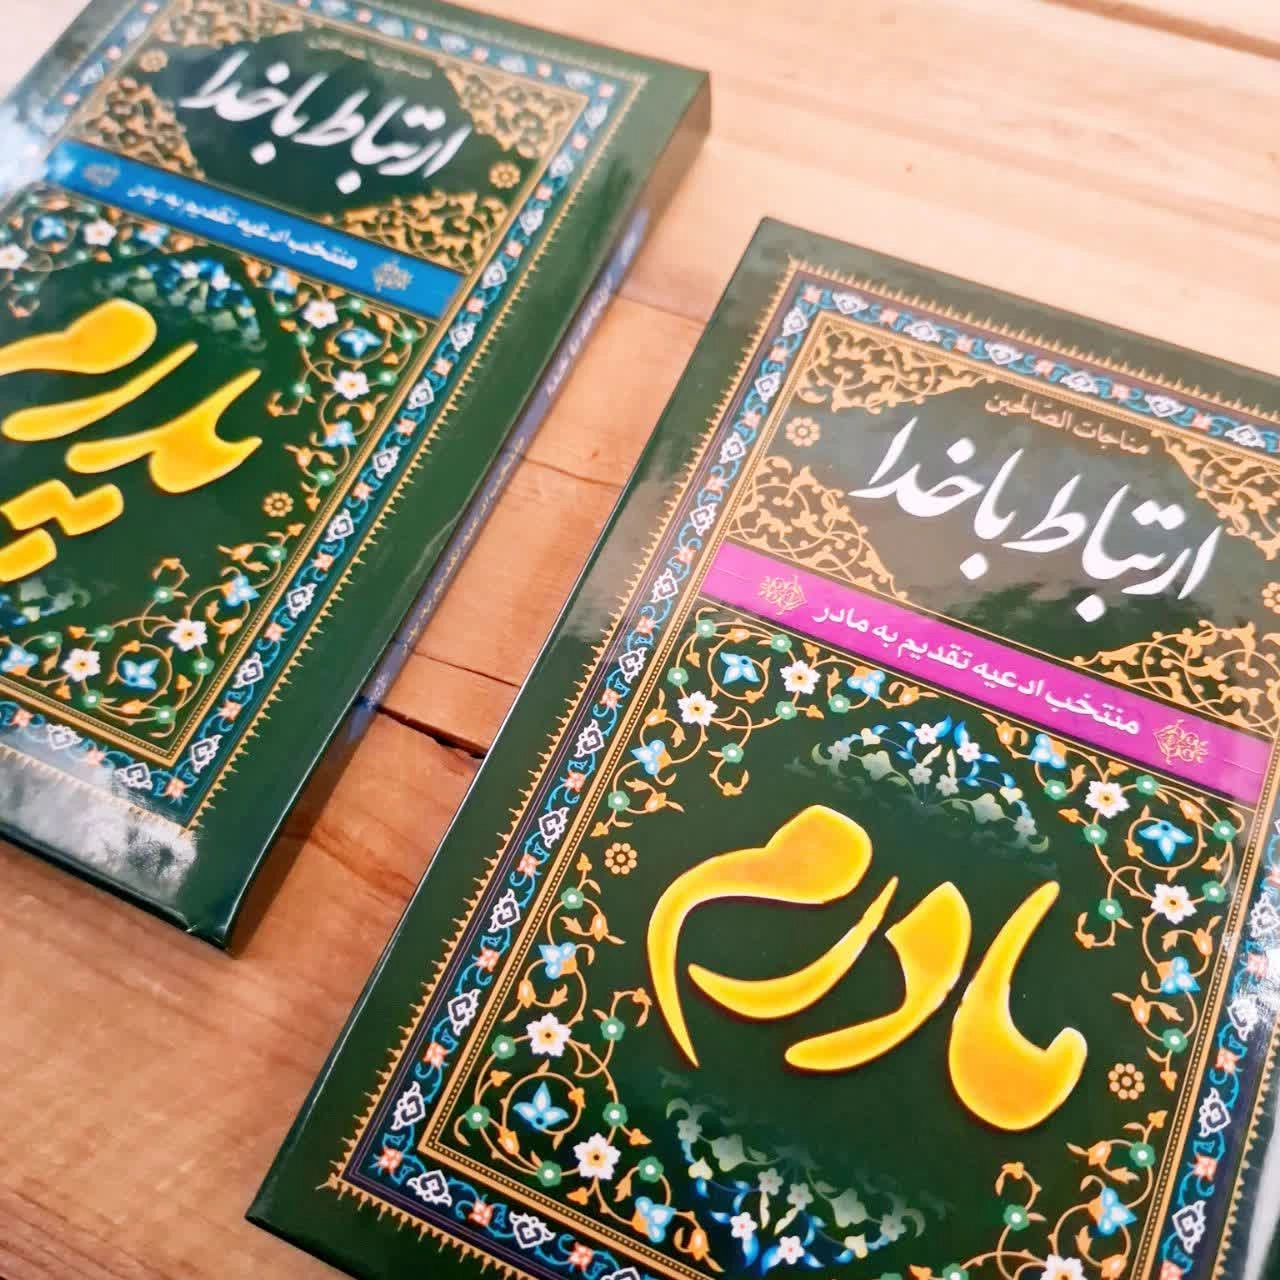 ارتباط با خدا
منتخب ادعیه تقدیم به پدر
پدرم
مناجات الصالحین
ارتباط با خدا
منتخب ادعیه تقدیم به مادر
مادرم